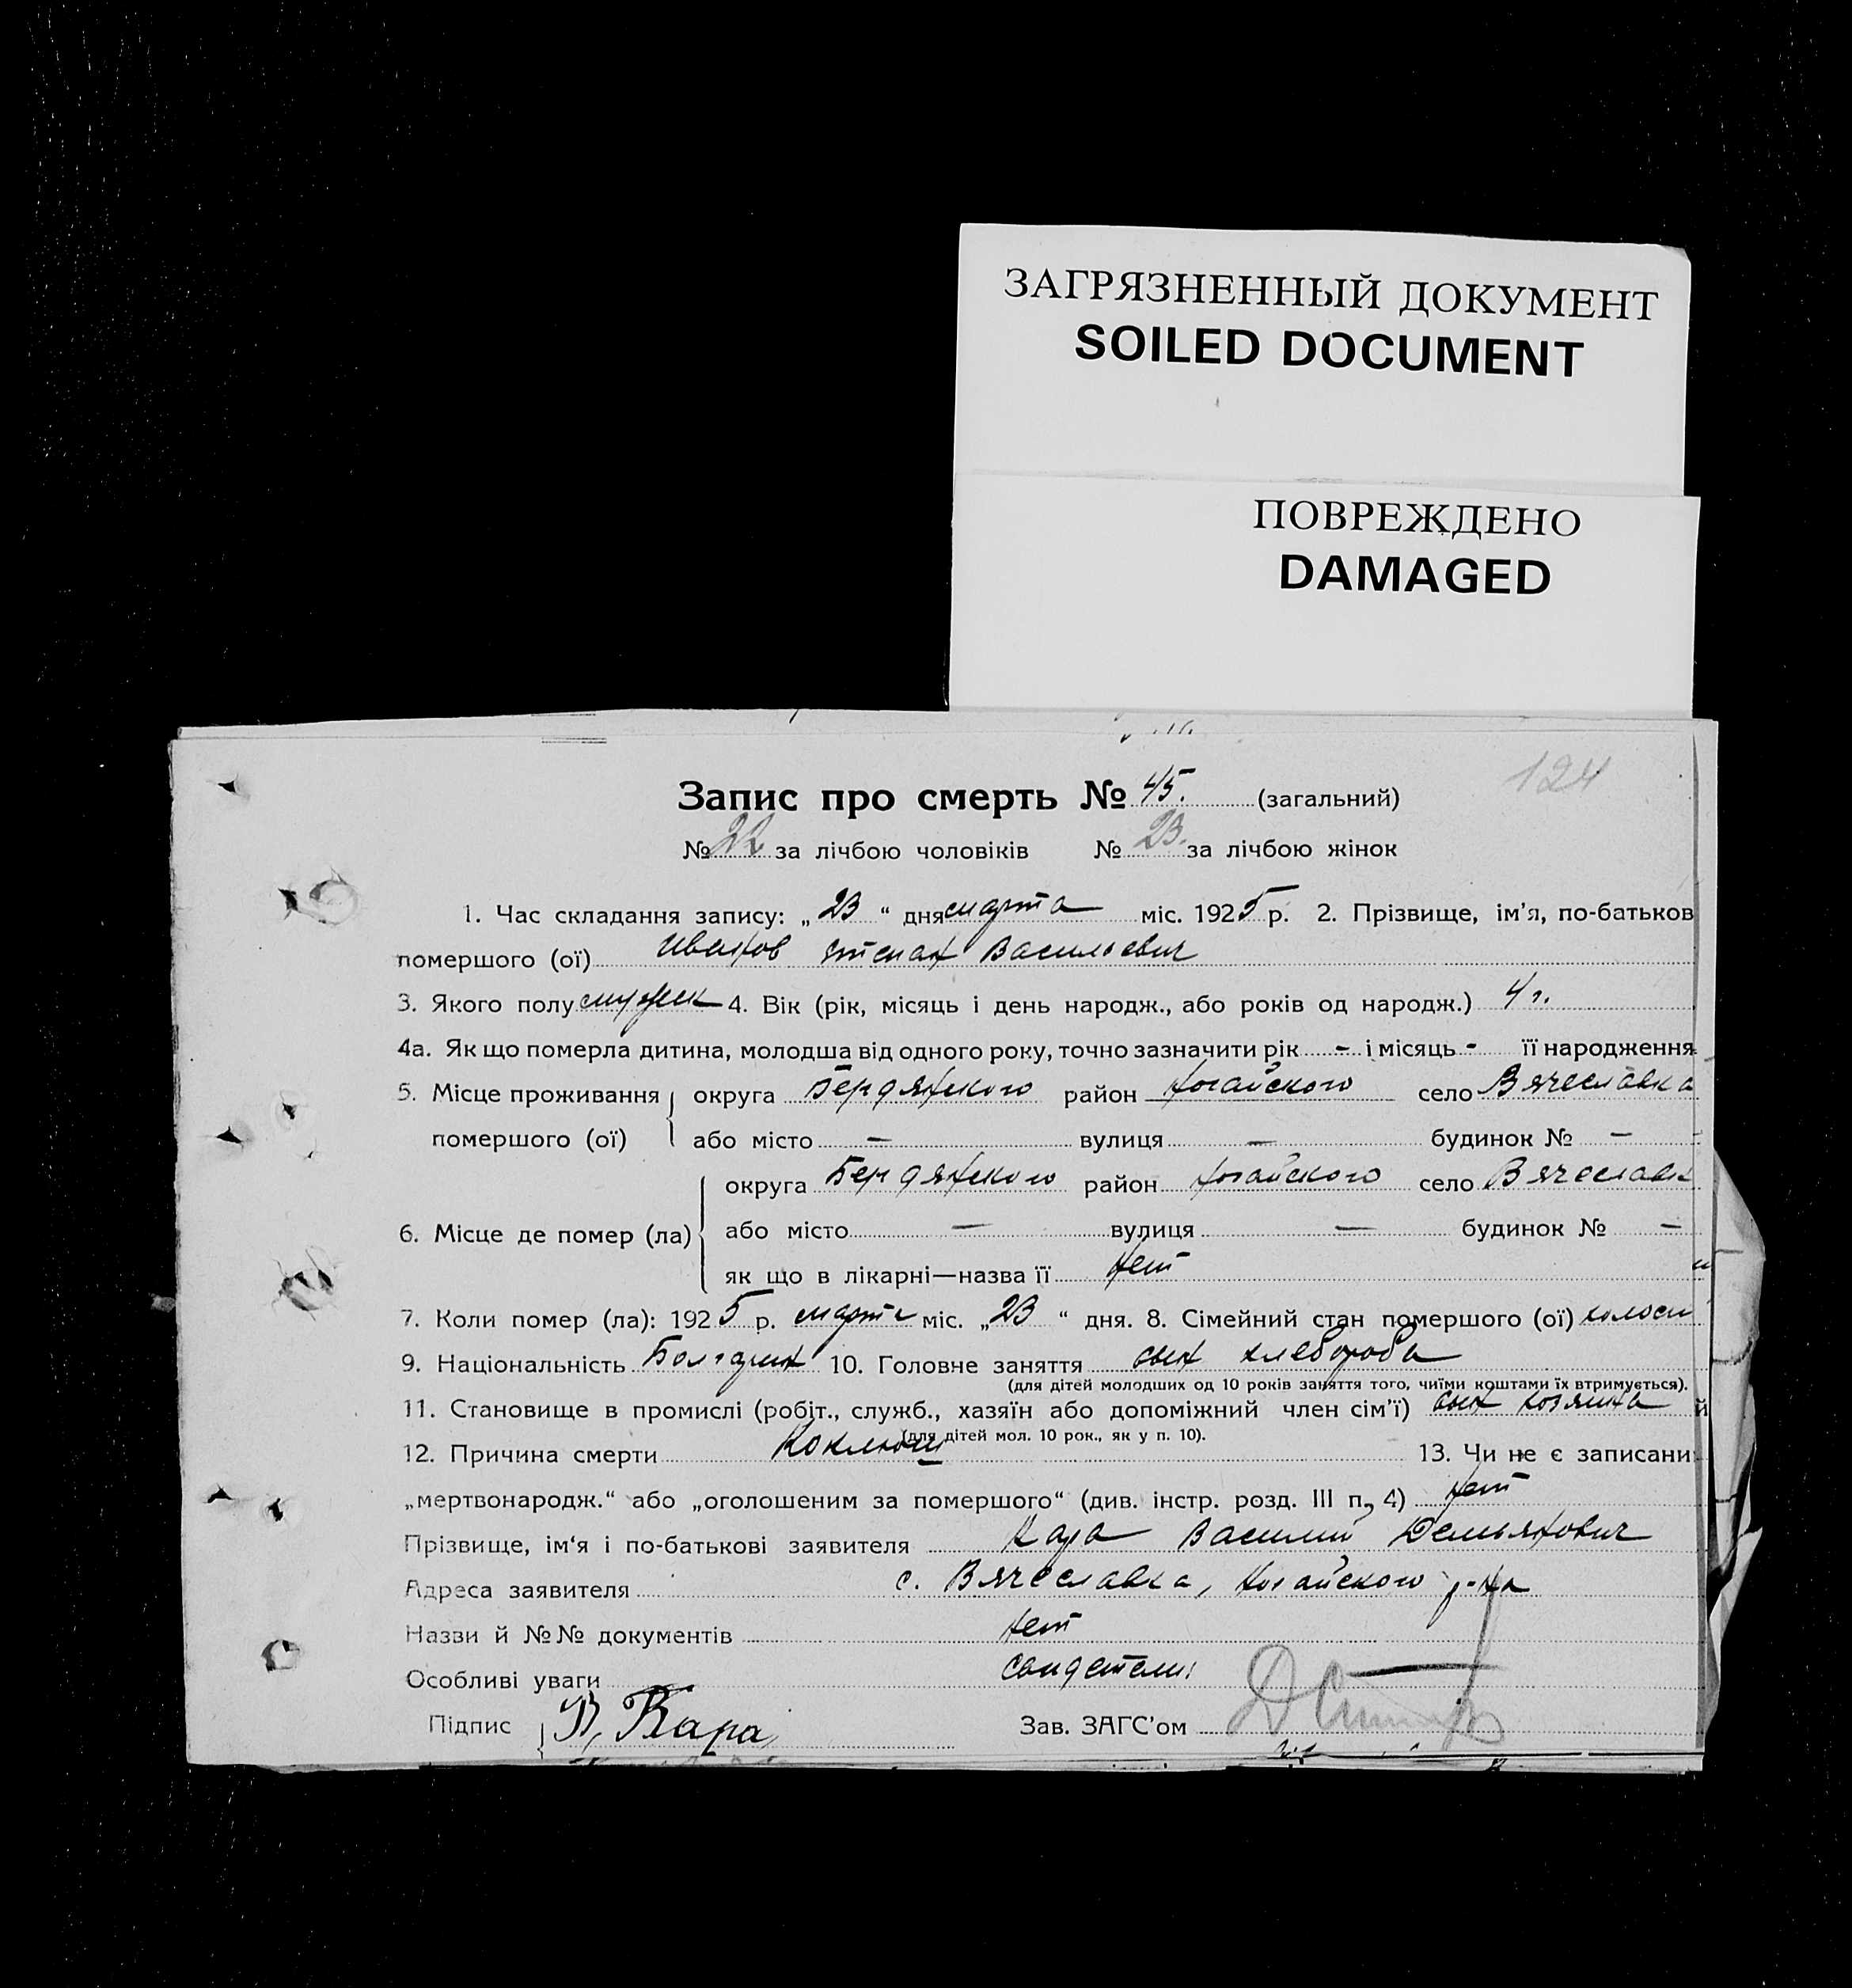 ЗАГРЯЗНЕННЫЙ ДОКУМЕНТ
SOILED DOCUMENT
ПОВРЕЖДЕНО
DAMAGED
124
Запис про смерть № 45. (загальний)
№ 22 за лічбою чоловіків № 23. за лічбою жінок
1. Час складання запису: „ 23 “ дня марта міс. 1925 р. 2. Прізвище, ім’я, по-батьков
помершого (ої) Иванов Степан Васильевич
3. Якого полу мужск 4. Вік (рік, місяць і день народж., або років од народж.) 4 г.
4а. Як що померла дитина, молодша від одного року, точно зазначити рік – і місяць - її народження
5. Місце проживання округа Бердянского район Ногайского село Вячеславка
помершого (ої) або місто — вулиця — будинок № —
округа Бердянского район Ногайского село Вячеславк
6. Місце де помер (ла) або місто — вулиця — будинок № —
як що в лікарні—назва її нет
7. Коли помер (ла): 1925 р. марта міс. „23 “ дня. 8. Сімейний стан помершого (ої) холост
9. Національність Болгарин 10. Головне заняття сын хлебороба
(для дітей молодших од 10 років заняття того, чиїми коштами їх втримується).
11. Становище в промислі (робіт., служб., хазяїн або допоміжний член сім’ї) сын хозяина
(для дітей мол. 10 рок., як у п. 10).
12. Причина смерти Коклюш 13. Чи не є записани
„мертвонародж.“ або „оголошеним за помершого“ (див. інстр. розд. III п, 4) нет
Прізвище, ім‘я і по-батькові заявителя Кара Василий Демьянович
Адреса заявителя с. Вячеславка, Ногайского р-на
Назви й №№ документів нет
Особливі уваги свидетели:
Підпис В. Кара Зав. ЗАГС’ом